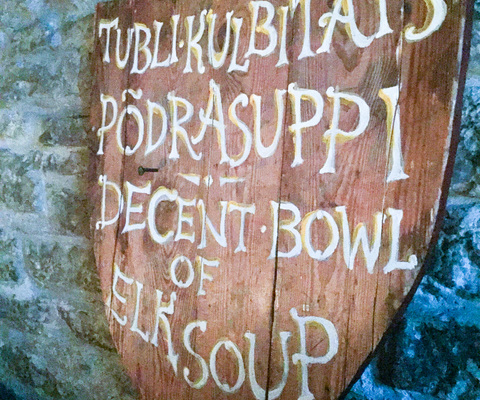 TUBLI·KULBITÄIS
PÕDRASUPPI
DECENT·BOWL
OF
ELK SOUP